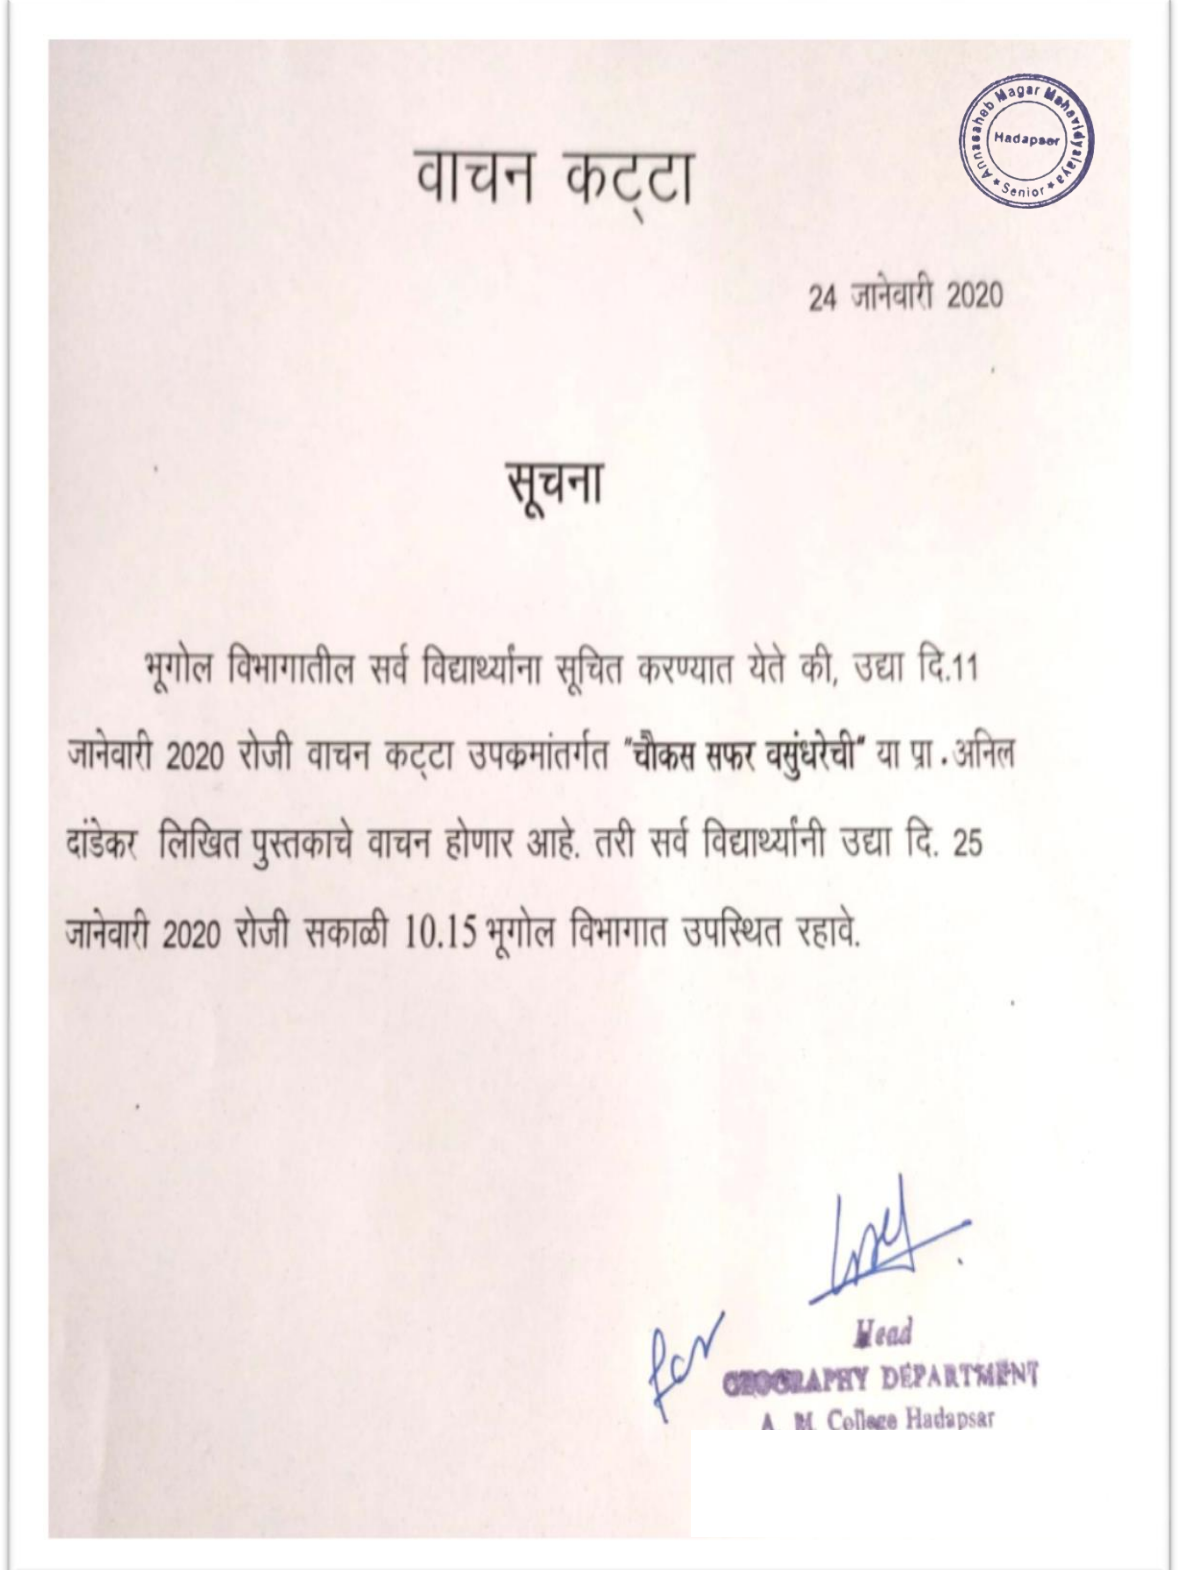 Annasaheb Magar Mahavidyalaya
Hadapsar
* Senior *
वाचन कट्टा
24 जानेवारी 2020
सूचना
भूगोल विभागातील सर्व विद्यार्थ्यांना सूचित करण्यात येते की, उद्या दि.11
जानेवारी 2020 रोजी वाचन कट्टा उपक्रमांतर्गत "चौकस सफर वसुंधरेची" या प्रा.अनिल
दांडेकर लिखित पुस्तकाचे वाचन होणार आहे. तरी सर्व विद्यार्थ्यांनी उद्या दि. 25
जानेवारी 2020 रोजी सकाळी 10.15 भूगोल विभागात उपस्थित रहावे.
for
Head
GEOGRAPHY DEPARTMENT
A. M. College Hadapsar